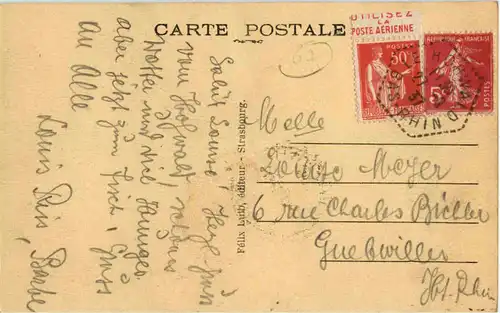 CARTE POSTALE
UTILISEZ
LA
POSTE AÉRIENNE
POSTES
50c
RÉPUBLIQUE FRANÇAISE
5c
POSTES
Salut Louise, Herzl. grüss
vom Hohwald, schönes
Wetter und viel Hunger
aber jetzt zum Tisch. Gruss
an Alle
Louis
Félix Luib, éditeur - Strasbourg.
Melle
Louise Meyer
6 rue Charles Bichler
Guebwiller
Ht. Rhin